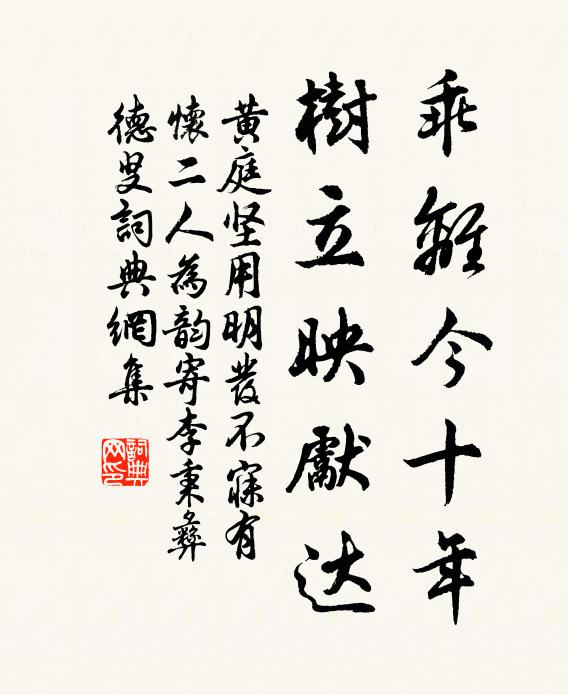 乖離今十年
樹立映獻达
黄庭坚用明發不寐有
懷二人為韵寄李秉彝
德叟詞典網集
詞典网印